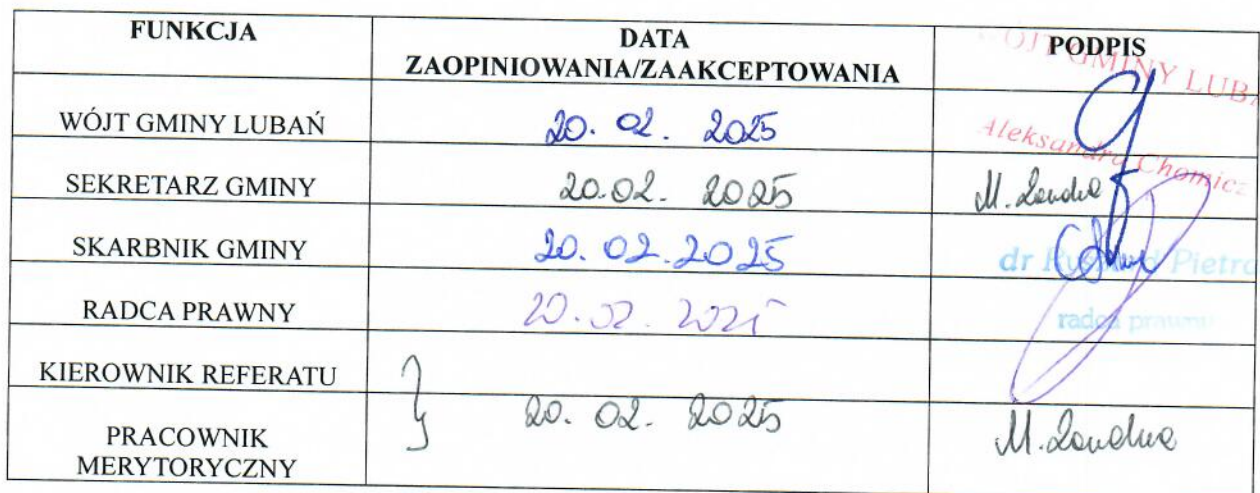 FUNKCJA
DATA
ZAOPINIOWANIA/ZAAKCEPTOWANIA
PODPIS
WÓJT GMINY LUBA
WÓJT GMINY LUBAŃ
20. 02. 2025
Aleksandra Chomicz
SEKRETARZ GMINY
20.02. 2025
M.
SKARBNIK GMINY
20. 02.2025
dr Pietr
RADCA PRAWNY
20.02.2025
radca prawny
KIEROWNIK REFERATU
20. 02. 2025
PRACOWNIK
MERYTORYCZNY
M.